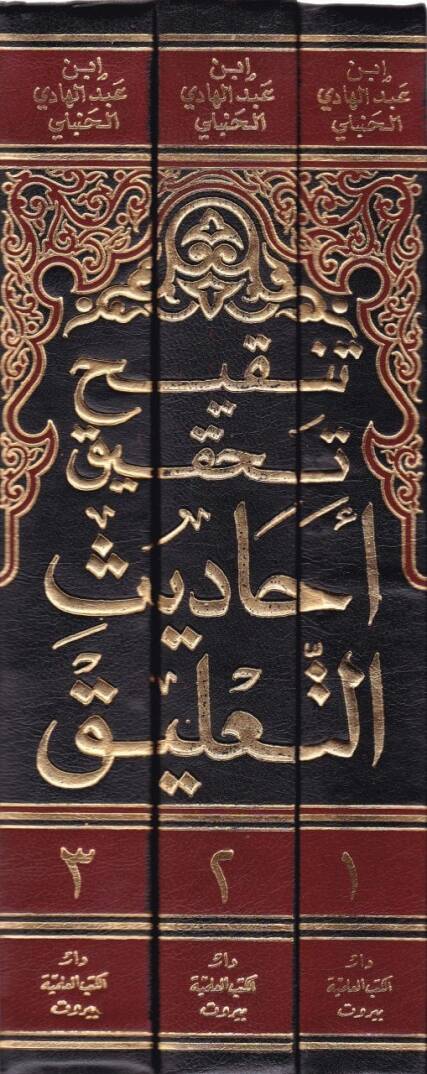 إبن
عبد الهادي
الحنبلي
إبن
عبد الهادي
الحنبلي
إبن
عبد الهادي
الحنبلي
تنقيح
تحقيق
أحَاديُث
التّعليق
١
٢
٣
دار
الكتب العلميّة
بيروت
دار
الكتب العلميّة
بيروت
دار
الكتب العلميّة
بيروت